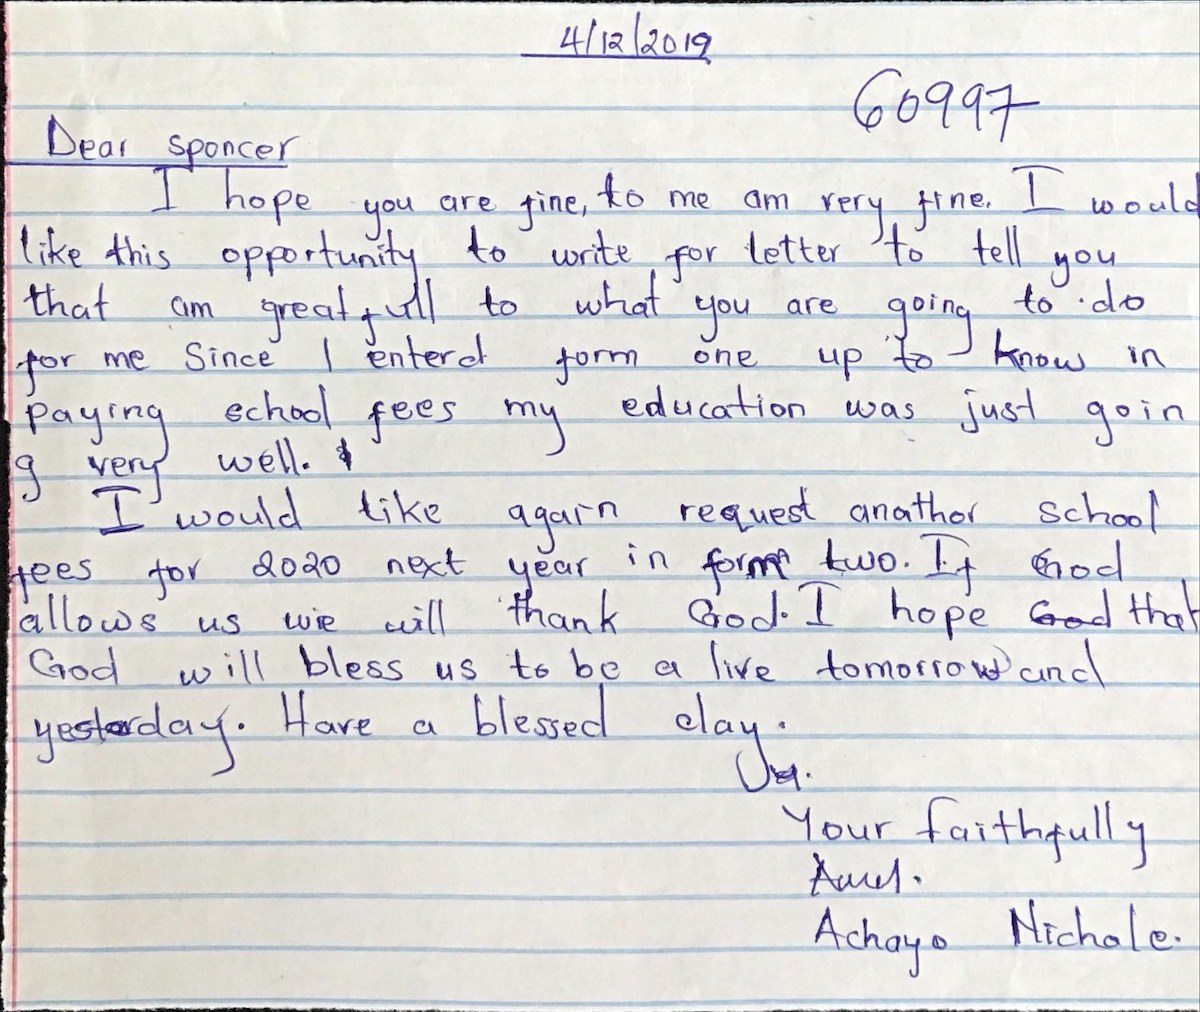 4/12/2019
60997
Dear sponcer
I hope you are fine, to me am very fine. I would
like this opportunity to write for letter to tell you
that am greatfull to what you are going to do
for me Since I enterd form one up to know in
paying school fees my education was just goin
g very well.
I would like again request anathor school
fees for 2020 next year in form two. If God
allows us we will thank God. I hope God that
God will bless us to be a live tomorrow and
yesterday. Have a blessed day.
Your faithfully
Achayo Nichole.